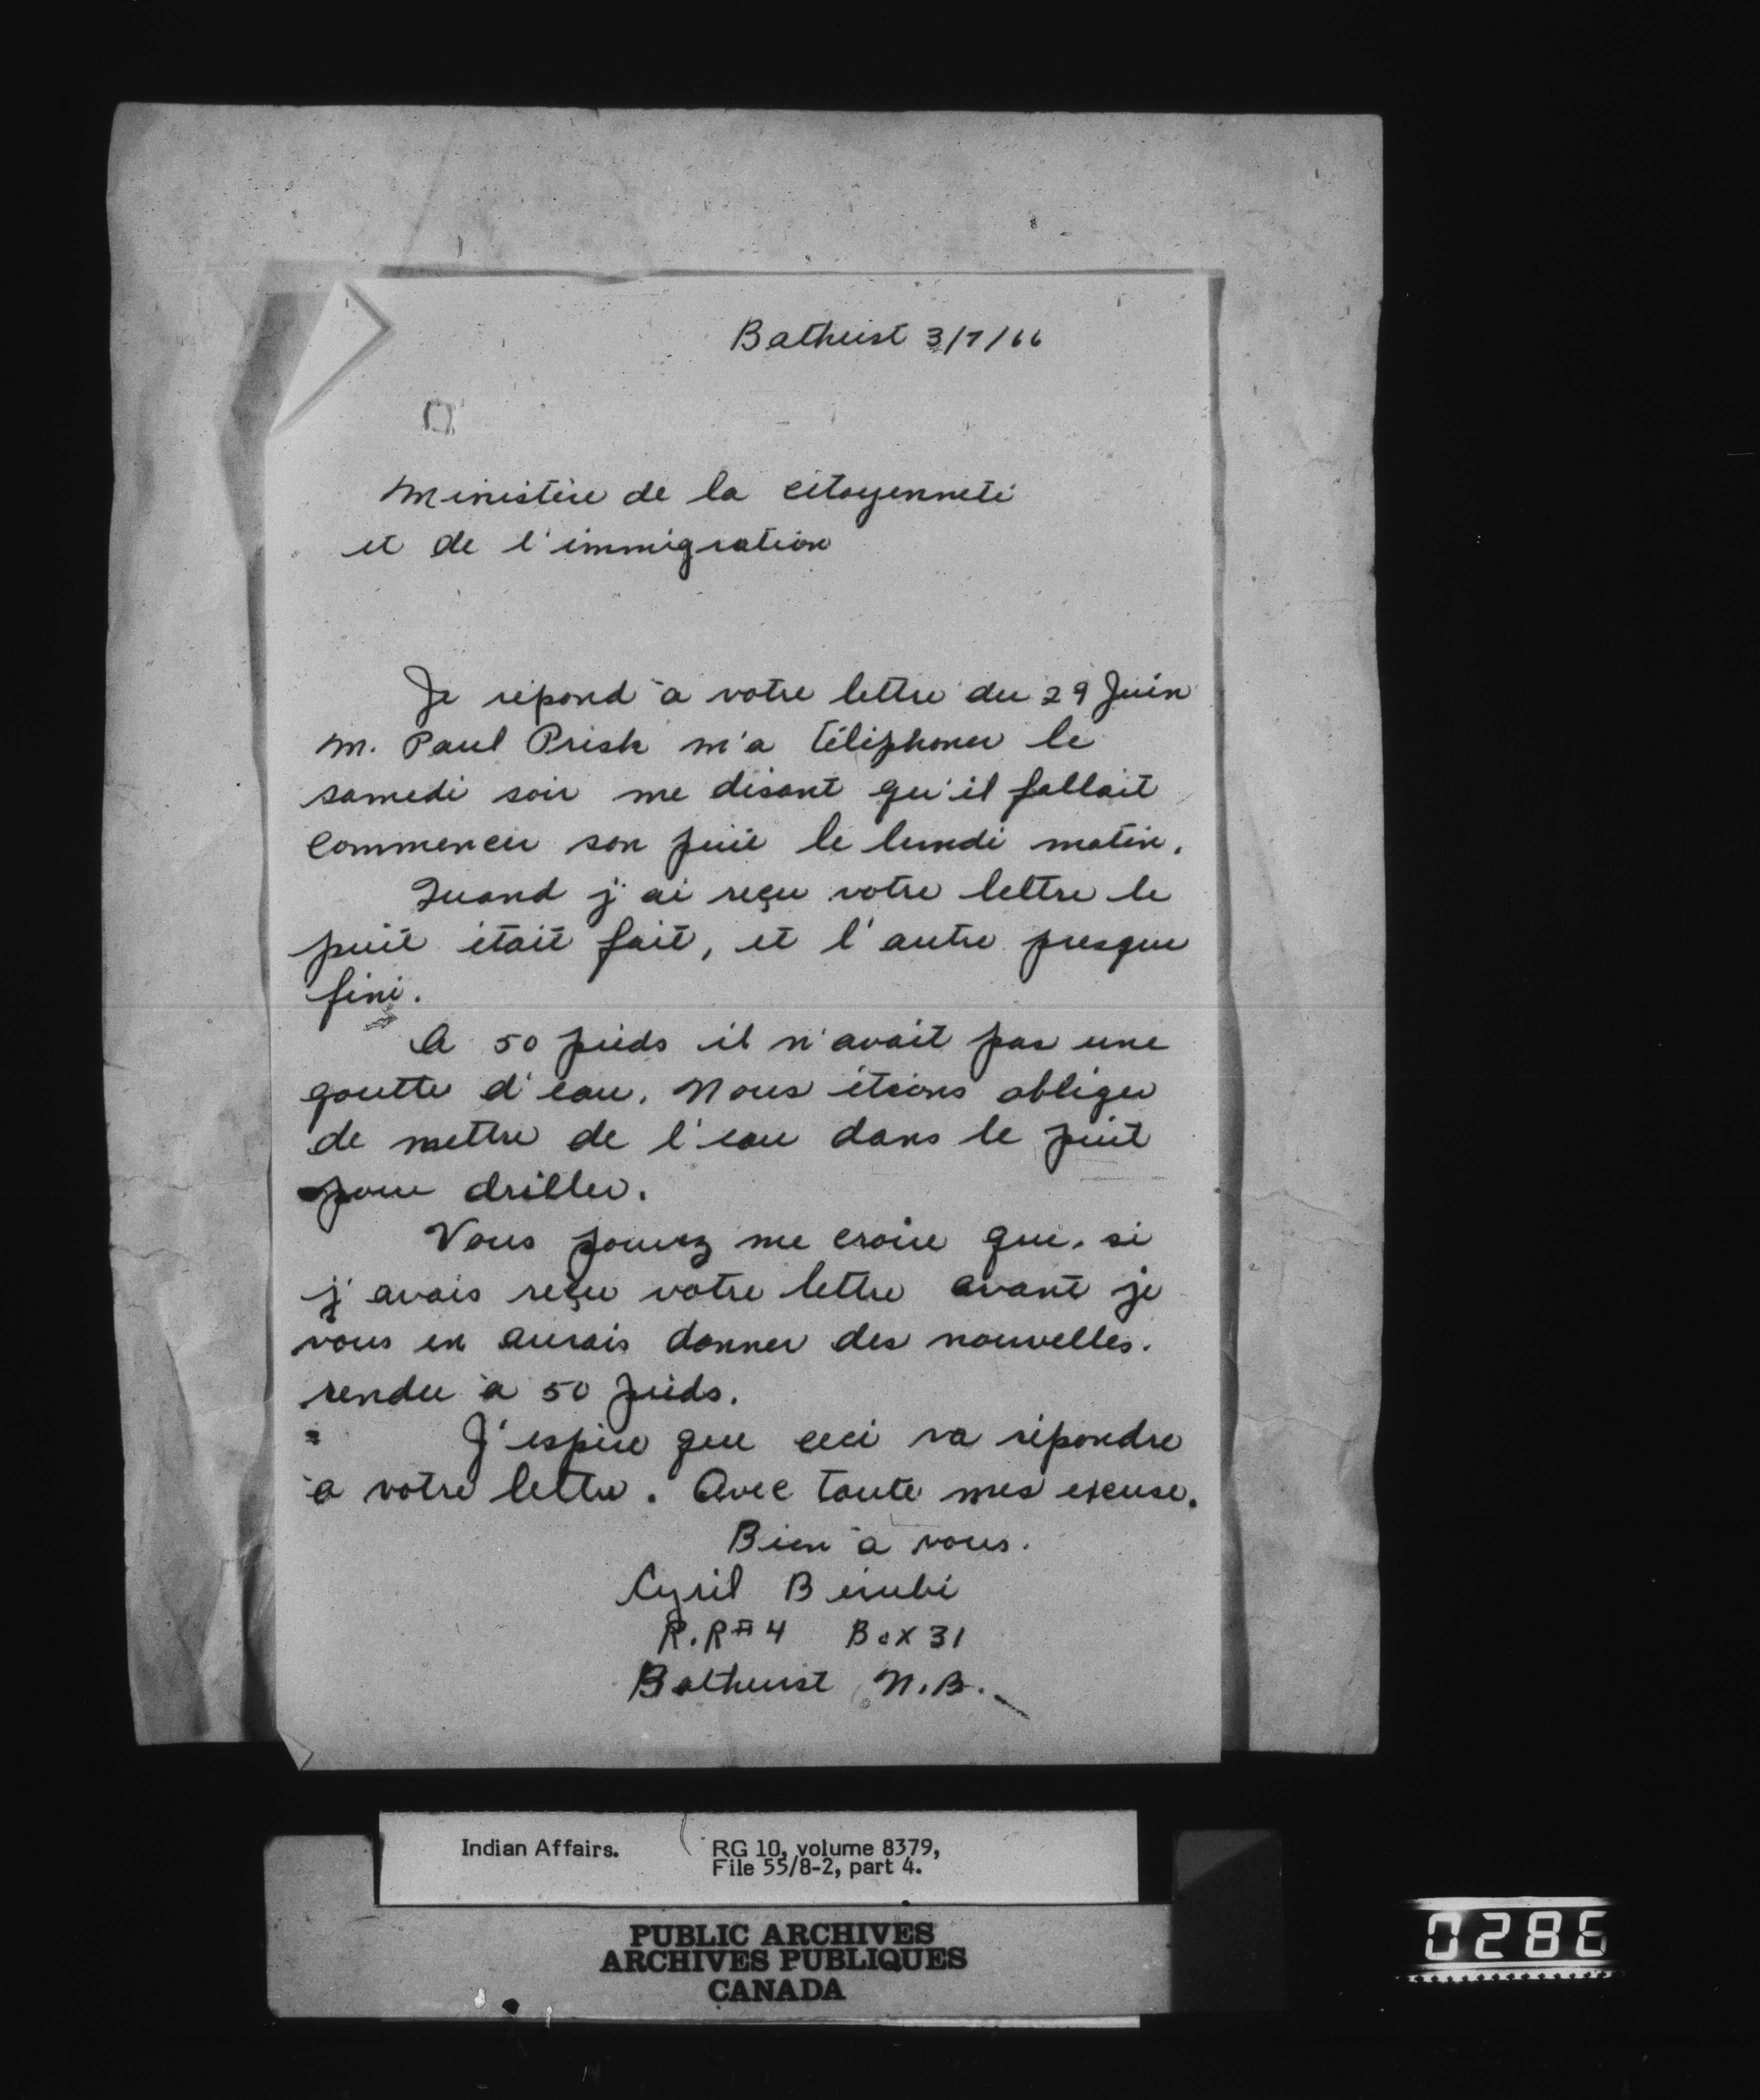 Bathurst 3/7/66
Ministère de la citoyenneté
et de l'immigration
Je répond à votre lettre du 29 Juin
M. Paul Prisk m'a téléphoner le
samedi soir me disant qu'il fallait
commencer son puit le lundi matin.
Quand j'ai reçu votre lettre le
puit était fait, et l'autre presque
fini.
A 50 pieds il n'avait pas une
goutte d'eau. Nous étions obliger
de mettre de l'eau dans le puit
pour driller.
Vous pouvez me croire que, si
j'avais reçu votre lettre avant je
vous en aurais donner des nouvelles.
rendu à 50 pieds.
J'espère que ceci va répondre
à votre lettre. Avec toute mes excuse.
Bien à vous.
Cyril Bérubé
R.R#4 Box 31
Bathurst N.B.
Indian Affairs. RG 10, volume 8379,
File 55/8-2, part 4.
PUBLIC ARCHIVES
ARCHIVES PUBLIQUES
CANADA